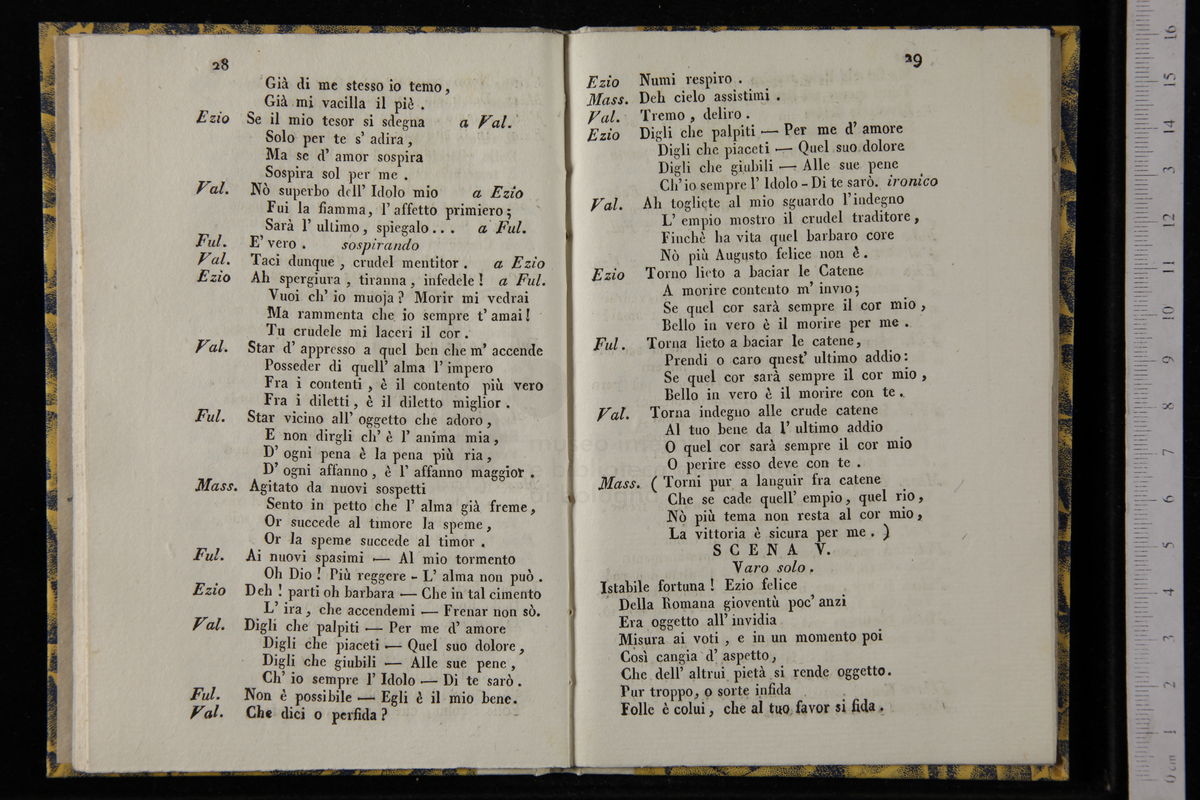 28
Già di me stesso io temo,
Già mi vacilla il piè .
Ezio Se il mio tesor si sdegna a Val.
Solo per te s' adira,
Ma se d' amor sospira
Sospira sol per me .
Val. Nò superbo dell' Idolo mio a Ezio
Fui la fiamma, l' affetto primiero;
Sarà l' ultimo, spiegalo... a Ful.
Ful. E' vero . sospirando
Val. Taci dunque, crudel mentitor . a Ezio
Ezio Ah spergiura, tiranna, infedele! a Ful.
Vuoi ch' io muoja? Morir mi vedrai
Ma rammenta che io sempre t' amai!
Tu crudele mi laceri il cor.
Val. Star d' appresso a quel ben che m' accende
Posseder di quell' alma l' impero
Fra i contenti, è il contento più vero
Fra i diletti, è il diletto miglior .
Ful. Star vicino all' oggetto che adoro,
E non dirgli ch' è l' anima mia,
D' ogni pena è la pena più ria,
D' ogni affanno, è l' affanno maggior .
Mass. Agitato da nuovi sospetti
Sento in petto che l' alma già freme,
Or succede al timore la speme,
Or la speme succede al timor .
Ful. Ai nuovi spasimi — Al mio tormento
Oh Dio! Più reggere - L' alma non può .
Ezio Deh! parti oh barbara — Che in tal cimento
L' ira, che accendemi — Frenar non sò.
Val. Digli che palpiti — Per me d' amore
Digli che piaceti — Quel suo dolore,
Digli che giubili — Alle sue pene,
Ch' io sempre l' Idolo — Di te sarò.
Ful. Non è possibile — Egli è il mio bene.
Val. Che dici o perfida?
29
Ezio Numi respiro .
Mass. Deh cielo assistimi .
Val. Tremo, deliro .
Ezio Digli che palpiti — Per me d' amore
Digli che piaceti — Quel suo dolore
Digli che giubili — Alle sue pene
Ch' io sempre l' Idolo - Di te sarò. ironico
Val. Ah togliete al mio sguardo l' indegno
L' empio mostro il crudel traditore,
Finchè ha vita quel barbaro core
Nò più Augusto felice non è.
Ezio Torno lieto a baciar le Catene
A morire contento m' invio;
Se quel cor sarà sempre il cor mio,
Bello in vero è il morire per me .
Ful. Torna lieto a baciar le catene,
Prendi o caro qnest' ultimo addio:
Se quel cor sarà sempre il cor mio,
Bello in vero è il morire con te .
Val. Torna indegno alle crude catene
Al tuo bene da l' ultimo addio
O quel cor sarà sempre il cor mio
O perire esso deve con te .
Mass. ( Torni pur a languir fra catene
Che se cade quell' empio, quel rio,
Nò più tema non resta al cor mio,
La vittoria è sicura per me . )
SCENA V.
Varo solo.
Istabile fortuna! Ezio felice
Della Romana gioventù poc' anzi
Era oggetto all' invidia
Misura ai voti, e in un momento poi
Così cangia d' aspetto,
Che dell' altrui pietà si rende oggetto.
Pur troppo, o sorte infida
Folle è colui, che al tuo favor si fida.